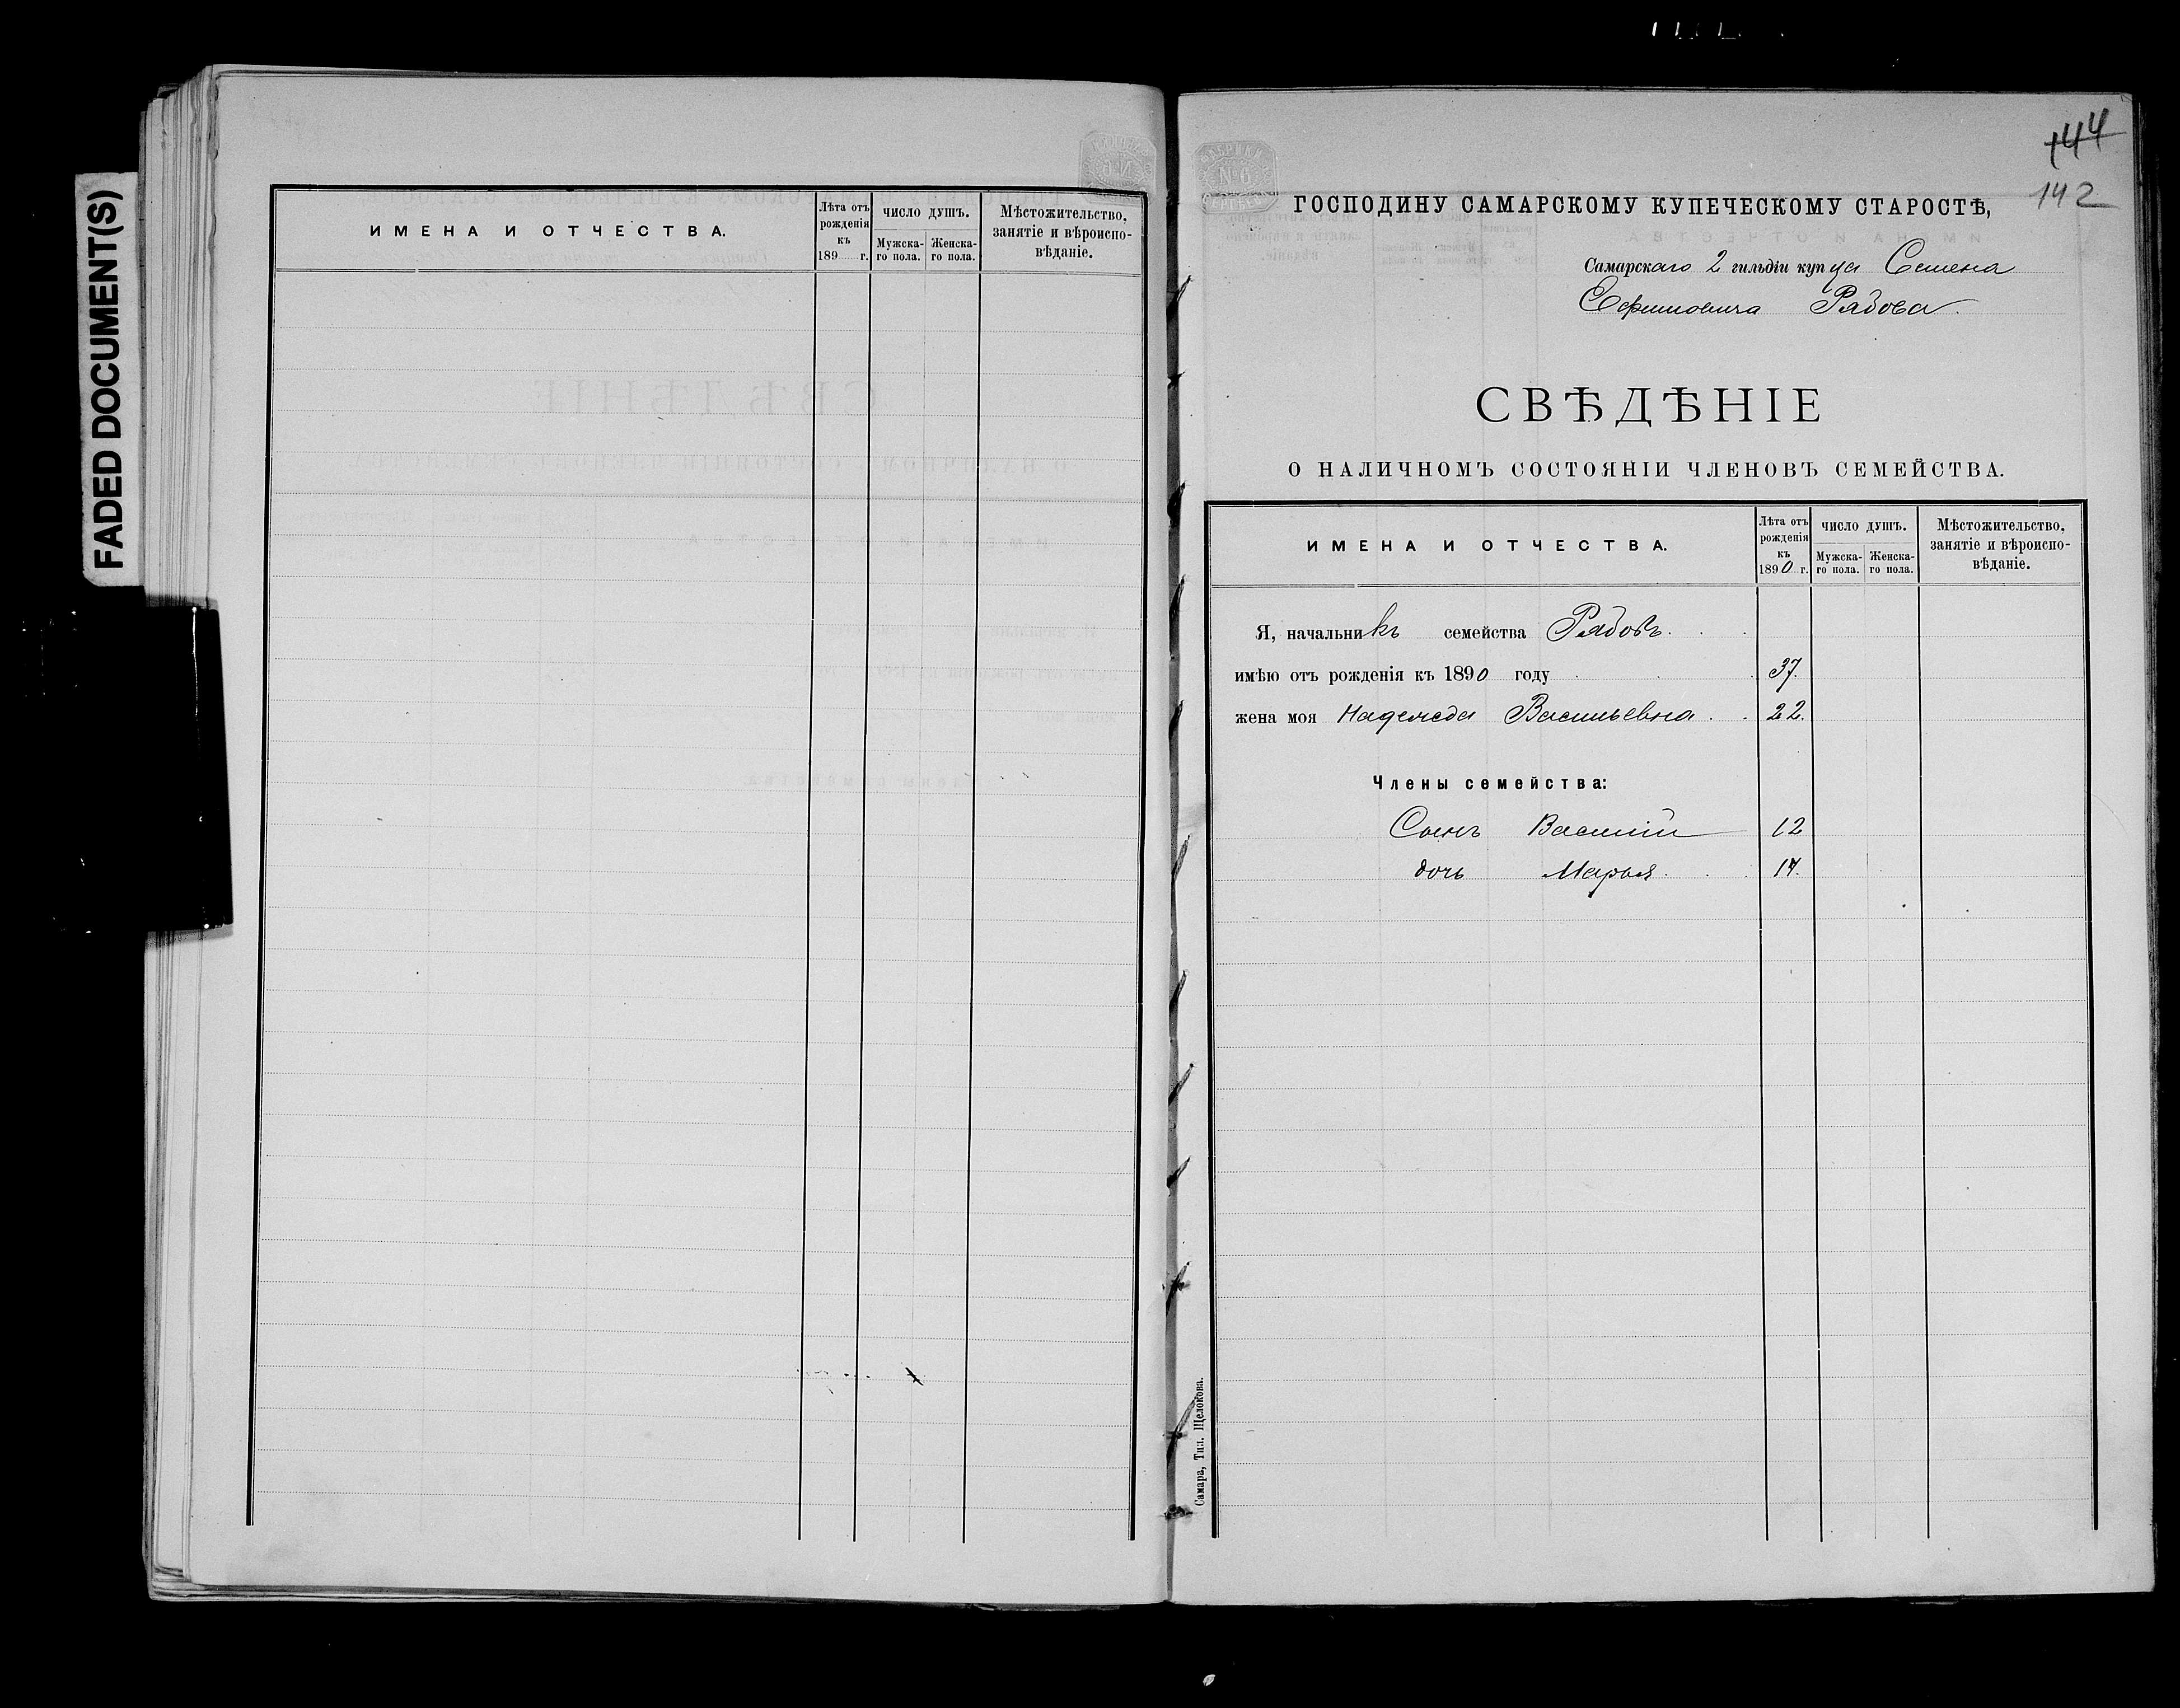 FADED DOCUMENT(S)
ИМЕНА И ОТЧЕСТВА.
Лѣта отъ рожденія къ 189 г.
ЧИСЛО ДУШЪ.
Мужска-го пола.
Женска-го пола.
Мѣстожительство, занятіе и вѣроиспо-вѣданіе.
144
142
ФАБРИКИ
№ 6
ГОСПОДИНУ САМАРСКОМУ КУПЕЧЕСКОМУ СТАРОСТѢ,
Самарскаго 2 гильдіи купца Семена
Ефимовича Рябова.
СВѢДѢНІЕ
О НАЛИЧНОМЪ СОСТОЯНІИ ЧЛЕНОВЪ СЕМЕЙСТВА.
ИМЕНА И ОТЧЕСТВА.
Лѣта отъ рожденія къ 1890 г.
ЧИСЛО ДУШЪ.
Мужска-го пола.
Женска-го пола.
Мѣстожительство, занятіе и вѣроиспо-вѣданіе.
Я, начальникъ семейства Рябовъ.
имѣю отъ рожденія къ 1890 году 37.
жена моя Надежда Васильевна 22.
Члены семейства:
Сынъ Василій 12
дочь Марья 14.
Самара, Тип. Щелокова.